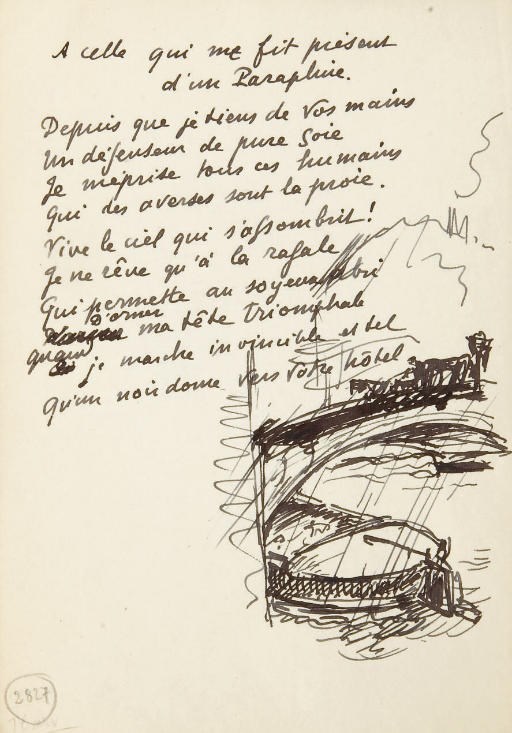 A celle qui me fit présent
d'un Parapluie.
Depuis que je tiens de Vos mains
Un défenseur de pure Soie
Je méprise tous ces humains
Qui des averses sont la proie.
Vive le ciel qui s'assombrit!
Je ne rêve qu'à la rafale
Qui permette au soyeux abri
D'orner
ma tête triomphale
quand je marche invincible et tel
Qu'un noir dome vers Votre hôtel
2827